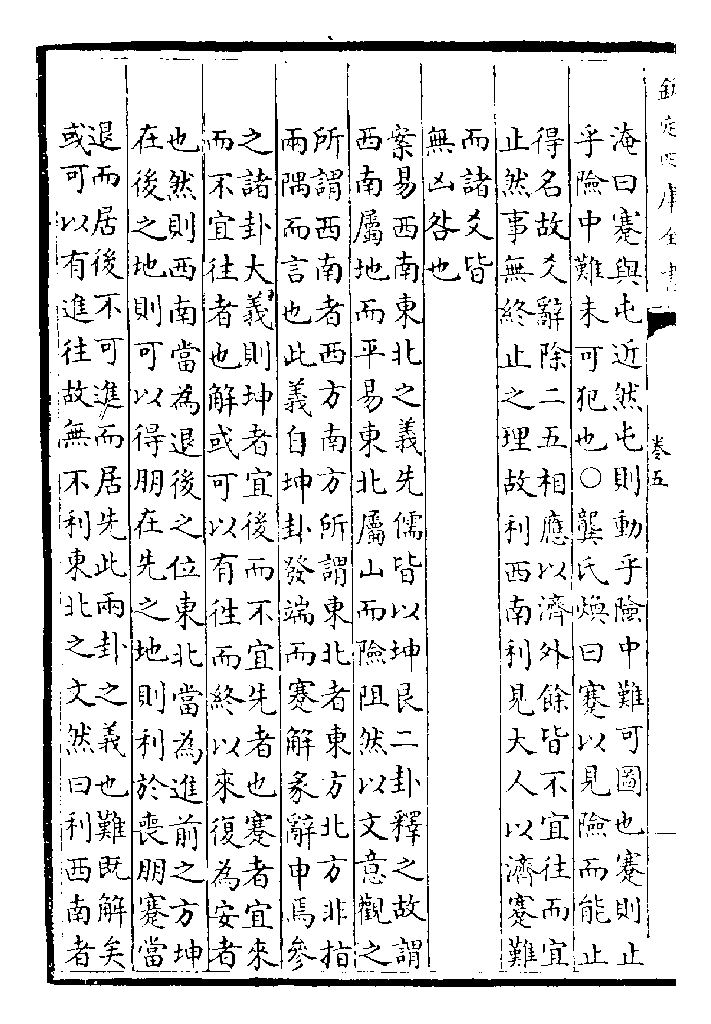 欽定四庫全書
卷五
淹曰蹇與屯近然屯則動乎險中難可圖也蹇則止
乎險中難未可犯也○龔氏煥曰蹇以見險而能止
得名故爻辭除二五相應以濟外餘皆不宜往而宜
止然事無終止之理故利西南利見大人以濟蹇難
而諸爻皆
無凶咎也
案易西南東北之義先儒皆以坤艮二卦釋之故謂
西南屬地而平易東北屬山而險阻然以文意觀之
所謂西南者西方南方所謂東北者東方北方非指
兩隅而言也此義自坤卦發端而蹇解彖辭申焉參
之諸卦大義則坤者宜後而不宜先者也蹇者宜來
而不宜往者也解或可以有往而終以來復為安者
也然則西南當為退後之位東北當為進前之方坤
在後之地則可以得朋在先之地則利於喪朋蹇當
退而居後不可進而居先此兩卦之義也難既解矣
或可以有進往故無不利東北之文然曰利西南者